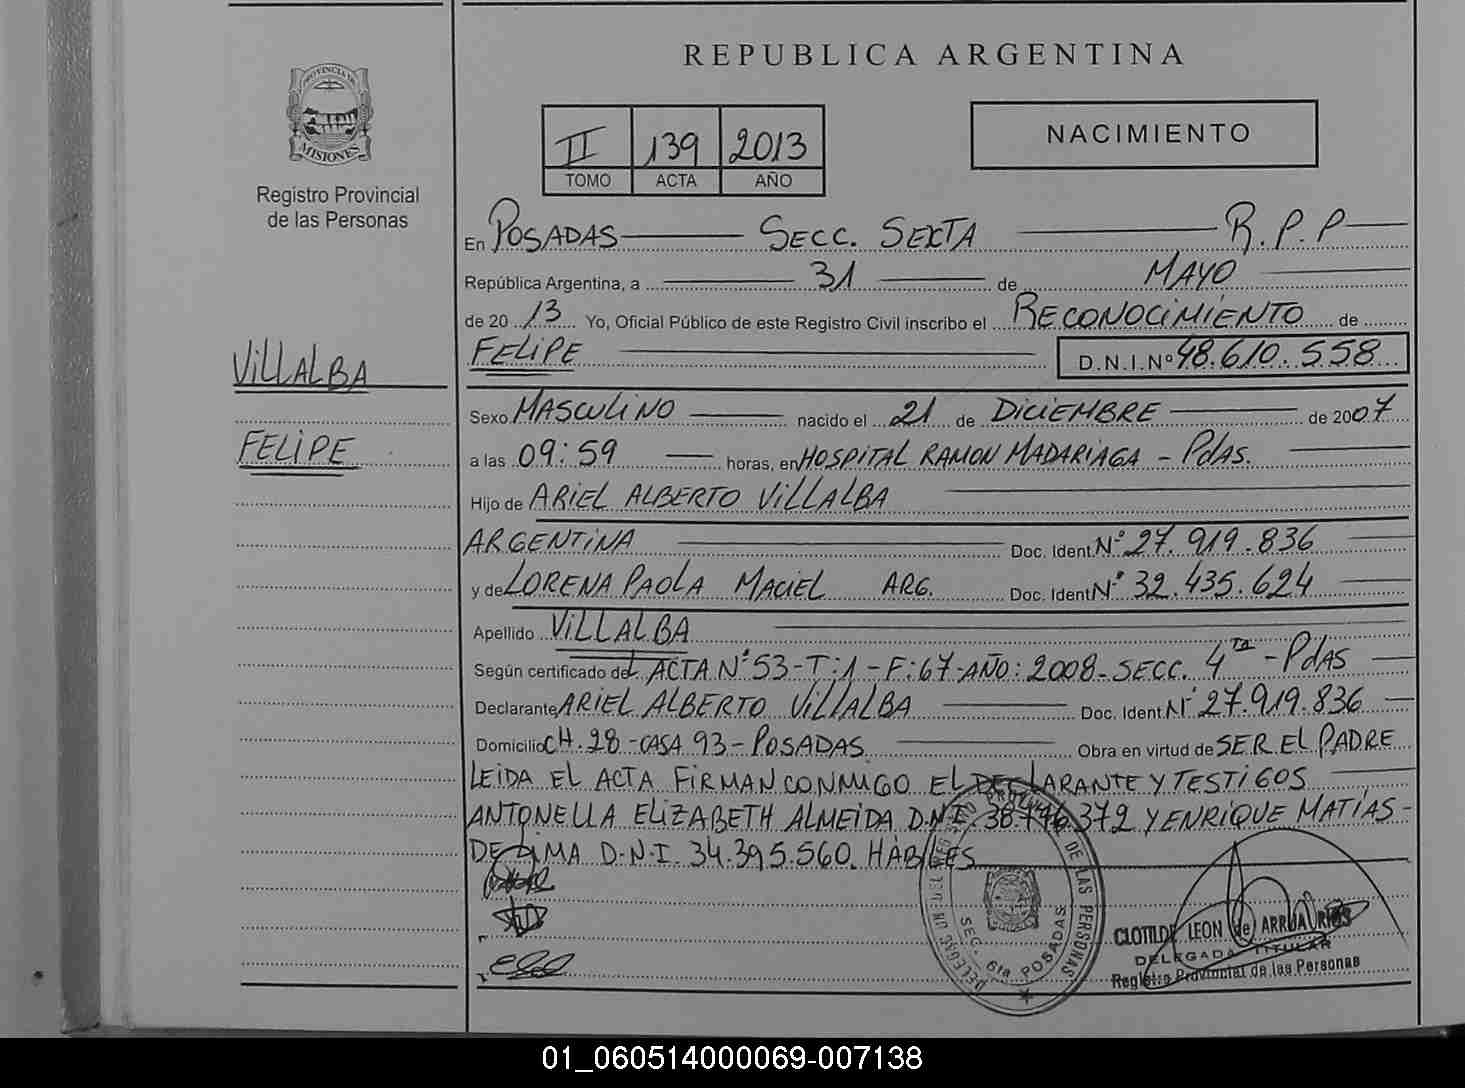 REPUBLICA ARGENTINA
PROVINCIA DE
MISIONES
Registro Provincial
de las Personas
II 139 2013
TOMO ACTA AÑO
NACIMIENTO
VILLALBA
FELIPE
En POSADAS SECC. SEXTA R.P.P
República Argentina, a 31 de MAYO
de 2013 Yo, Oficial Público de este Registro Civil inscribo el RECONOCIMIENTO de
FELIPE D.N.I.Nº 48.610.558
Sexo MASCULINO nacido el 21 de DICIEMBRE de 2007
a las 09:59 horas, en HOSPITAL RAMON MADARIAGA - PdAS.
Hijo de ARIEL ALBERTO VILLALBA
ARGENTINA Doc. Ident Nº 27.919.836
y de LORENA PAOLA MACIEL ARG. Doc. Ident Nº 32.435.624
Apellido VILLALBA
Según certificado del ACTA Nº 53-T:1-F:67-AÑO:2008-SECC. 4ta-PdAS
Declarante ARIEL ALBERTO VILLALBA Doc. Ident Nº 27.919.836
Domicilio CH.28-CASA 93-POSADAS Obra en virtud de SER EL PADRE
LEIDA EL ACTA FIRMAN CONMIGO EL DECLARANTE Y TESTIGOS
ANTONELLA ELIZABETH ALMEIDA D.N.I. 38.776.372 Y ENRIQUE MATÍAS-
DE LIMA D.N.I. 34.395.560. HABILES
DE LAS PERSONAS
SEC. 6ta POSADAS
CLOTILDE LEON de ARRUA RIOS
DELEGADA TITULAR
Registro Provincial de las Personas
01_060514000069-007138